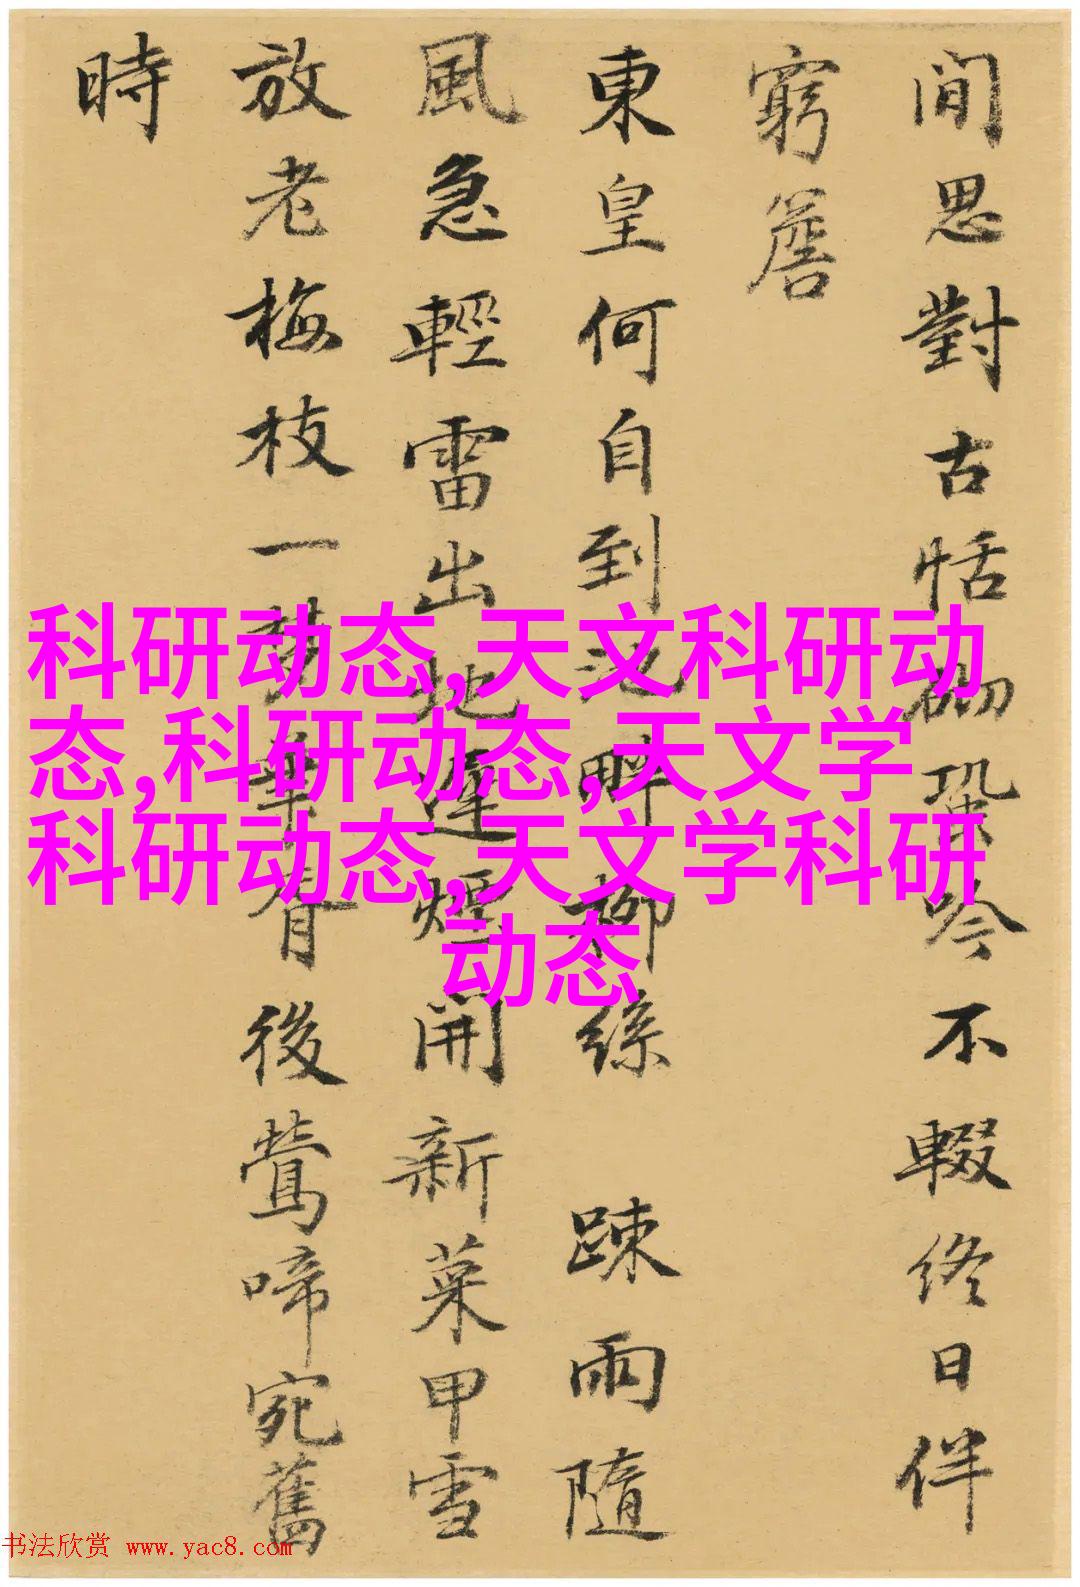 閒思對古恬砌蛩吟不輟終日伴
窮簷
東皇何自到池畔柳絲 踈雨隨
風急輕雷出地遲煙開新菜甲雪
放老梅枝一夢華胥後鶯啼宛舊
時
科研动态,天文科研动
态,科研动态,天文学
科研动态,天文学科研
动态
书法欣赏 www.yac8.com